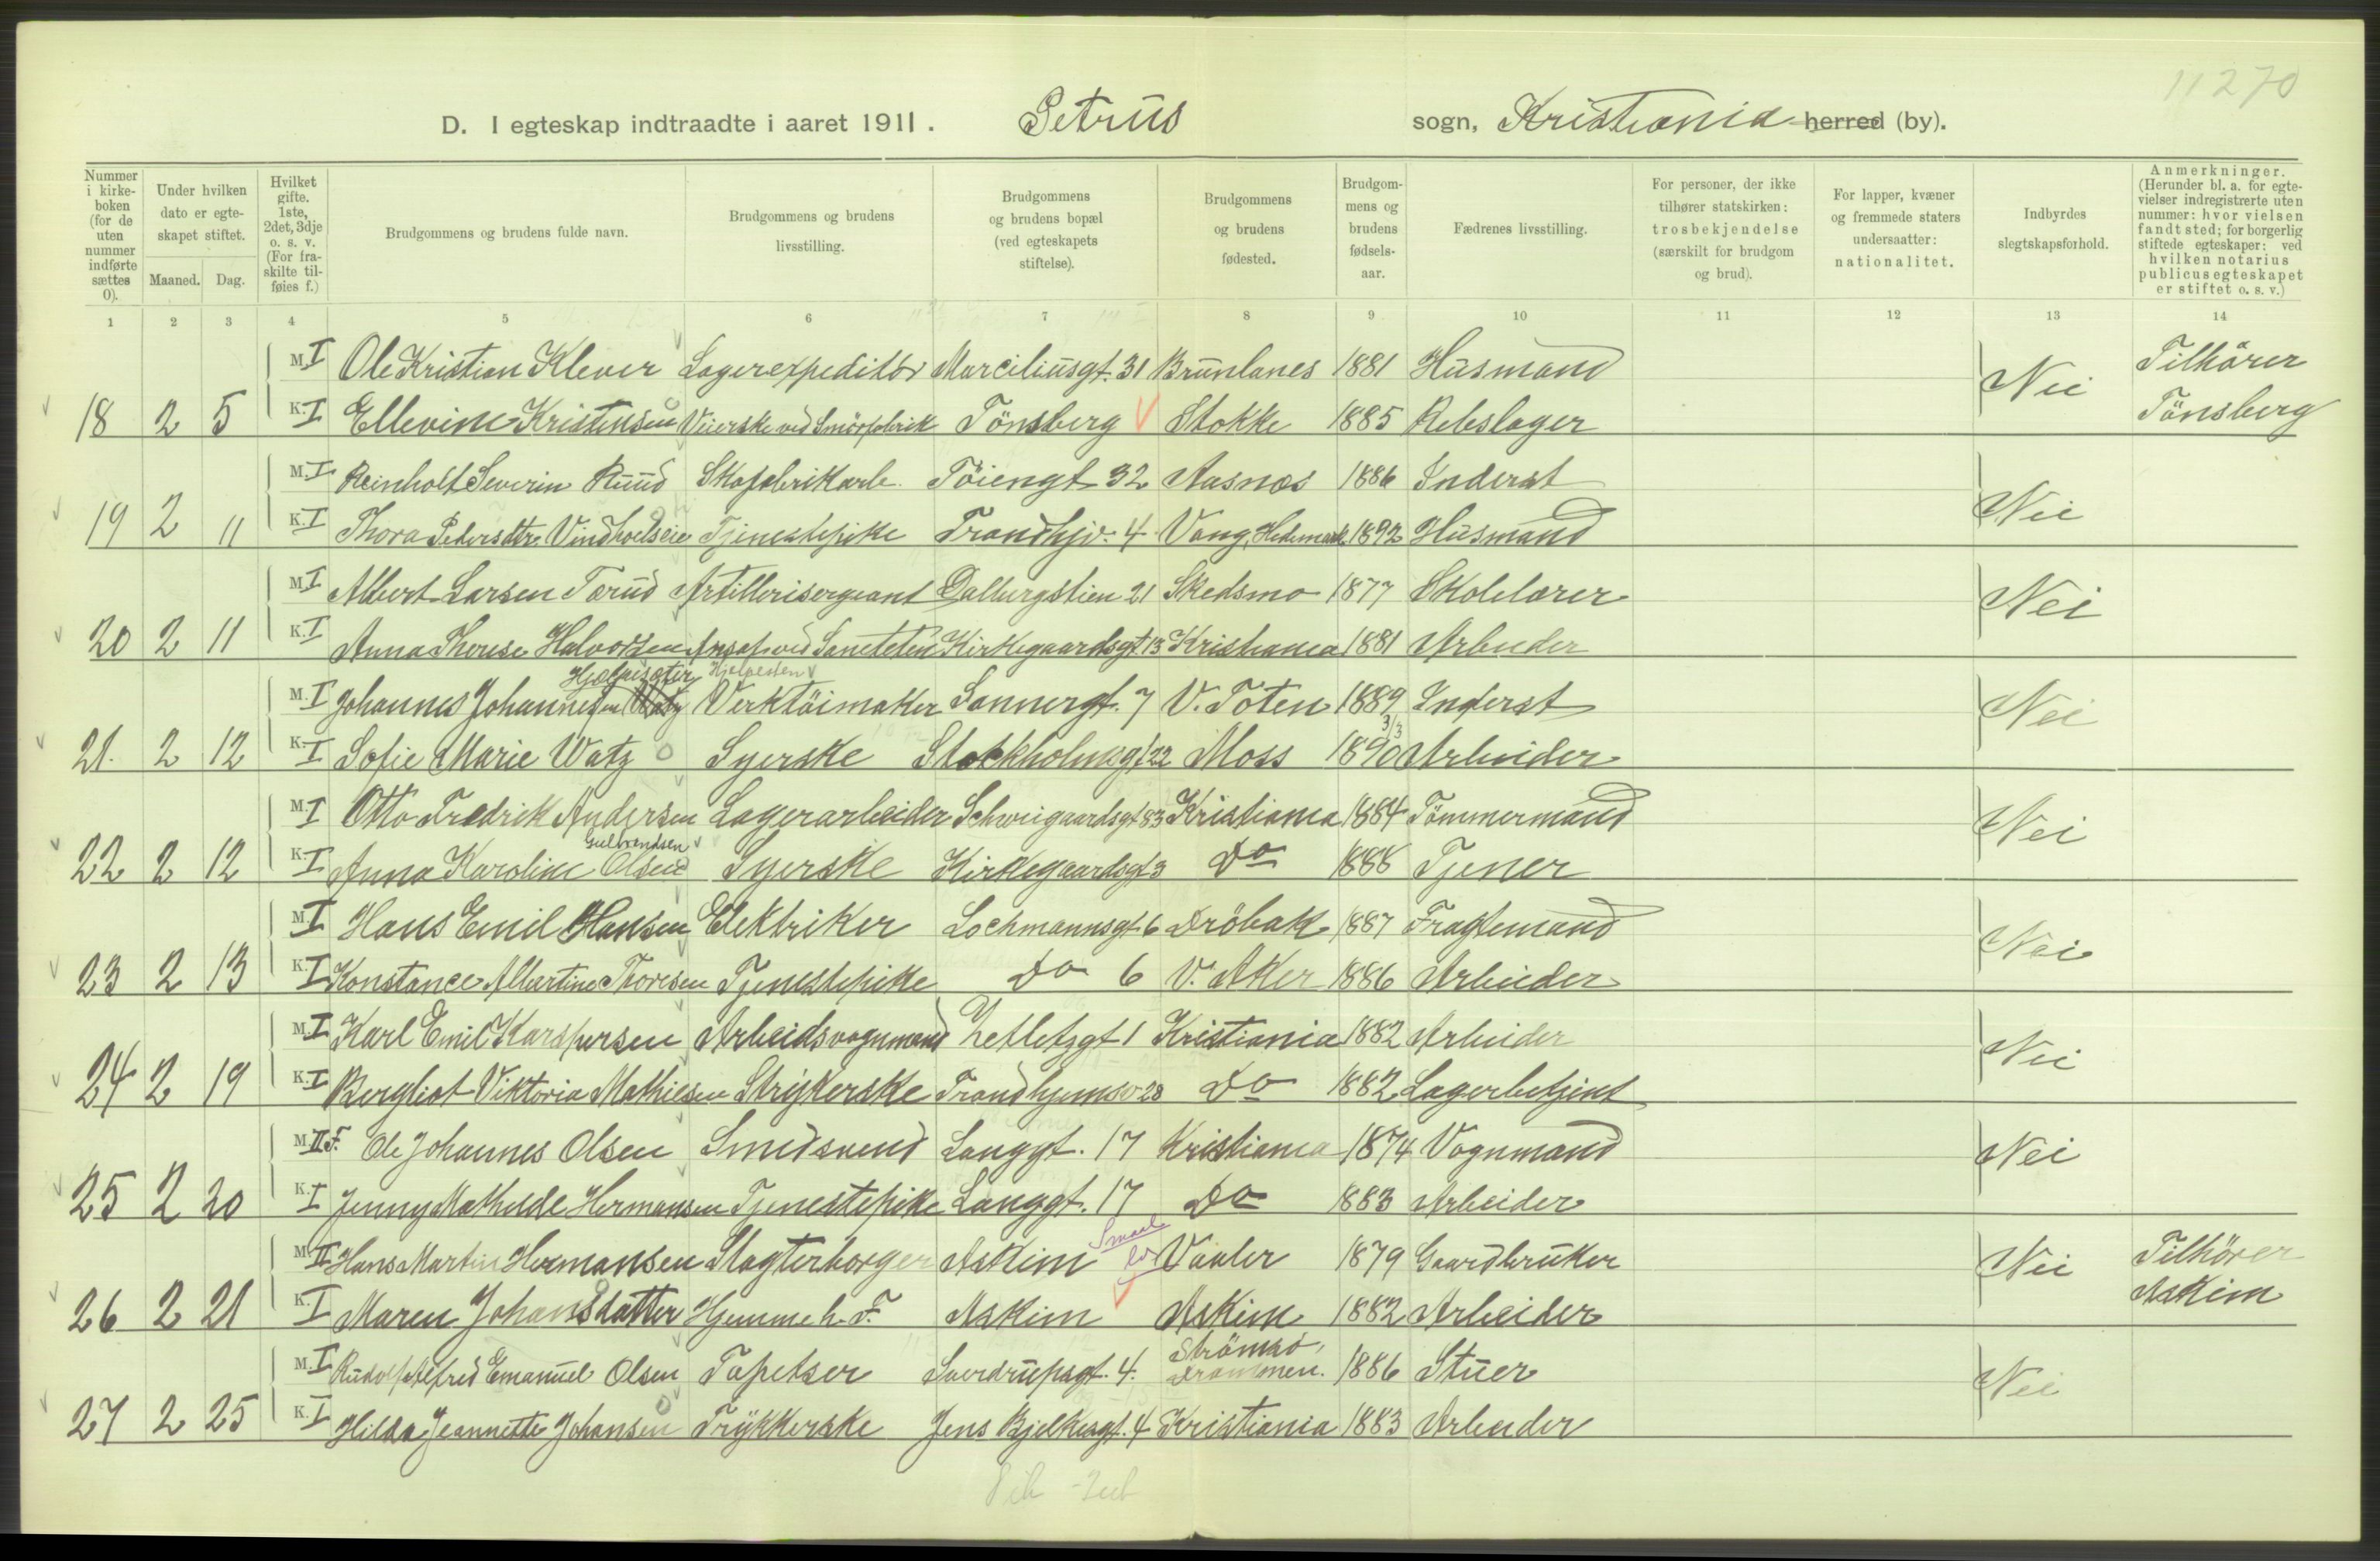 11270
D. I egteskap indtraadte i aaret 1911. Petrus sogn, Kristiania herred (by).
Nummer i kirke-boken (for de uten nummer indførte sættes 0).
Under hvilken dato er egte-skapet stiftet.
Maaned. Dag.
Hvilket gifte. 1ste, 2det, 3dje o. s. v. (For fra-skilte til-føies f.)
Brudgommens og brudens fulde navn.
Brudgommens og brudens livsstilling.
Brudgommens og brudens bopæl (ved egteskapets stiftelse).
Brudgommens og brudens fødested.
Brudgom-mens og brudens fødsels-aar.
Fædrenes livsstilling.
For personer, der ikke tilhører statskirken: trosbekjendelse (særskilt for brudgom og brud).
For lapper, kvæner og fremmede staters undersaatter: nationalitet.
Indbyrdes slegtskapsforhold.
Anmerkninger. (Herunder bl. a. for egte-vielser indregistrerte uten nummer: hvor vielsen fandt sted; for borgerlig stiftede egteskaper: ved hvilken notarius publicus egteskapet er stiftet o. s. v.)
1 2 3 4 5 6 7 8 9 10 11 12 13 14
M. I Ole Kristian Klever Lagerexpeditör Marciliusgt. 31 Brunlanes 1881 Husmand Nei Tilhörer
18 2 5 K. I Ellevine Kristensen Veierske ved Smörfabrik Tönsberg Stokke 1885 Rebslager Tönsberg
M. I Reinholt Severin Ruud Skofabrikarb. Töiengt 32 Aasnes 1886 Inderst Nei
19 2 11 K. I Thora Pedersdtr. Vindhoelseie Tjenestepike Trondhjv. 4 Vang, Hedemark. 1892 Husmand
M. I Albert Larsen Torud Artillerisergeant Dalbergstien 21 Skedsmo 1877 Skolelærer Nei
20 2 11 K. I Anna Therese Halvorsen Ansat ved Saniteten Kirkegaardsgt 13 Kristiania 1881 Arbeider
Hjælpeseter Hjelpesten
M. I Johannes Johannesen Watz Verktöimaker Sannergt. 7 V. Toten 1889 Inderst Nei
3/3
21. 2 12 K. I Sofie Marie Watz Syerske Stokkholmsgt 22 Moss 1890 Arbeider
M. I Otto Fredrik Andersen Lagerarbeider Schweigaardsgt 83 Kristiania 1884 Tömmermand Nei
Gulbrandsen
22 2 12 K. I Anna Karoline Olsen Syerske Kirkegaardsgt 3 Do 1888 Tjener
M. I Hans Emil Hansen Elektriker Lochmannsgt 6 Dröbak 1887 Fragtemand Nei
23 2 13 K. I Konstance Albertine Thoresen Tjenestepike Do 6 V. Aker 1886 Arbeider
M. I Karl Emil Karspersen Arbeidsvognmand Zetletzgt 1 Kristiania 1882 Arbeider Nei
24 2 19 K. I Bergliot Viktoria Mathiesen Strykerske Trondhjemsv 28 Do 1882 Lagerbetjent
M. II F. Ole Johannes Olsen Smedsvend Langgt. 17 Kristiania 1874 Vognmand Nei
25 2 20 K. I Jenny Mathilde Hermansen Tjenestepike Langgt. 17 Do 1883 Arbeider
Smaal
M. II Hans Martin Hermansen Slagterborger Askim Vaaler 1879 Gaardbruker Nei Tilhörer
26 2 21 K. I Maren Johansdatter Hjemme h. F. Askim Askim 1882 Arbeider Askim
Strömsö,
M. I Rudolf Alfred Emanuel Olsen Tapetser Sverdrupsgt. 4. Drammen. 1886 Stuer Nei
27 2 25 K. I Hilda Jeannette Johansen Trykkerske Jens Bjelkesgt. 4 Kristiania 1883 Arbeider